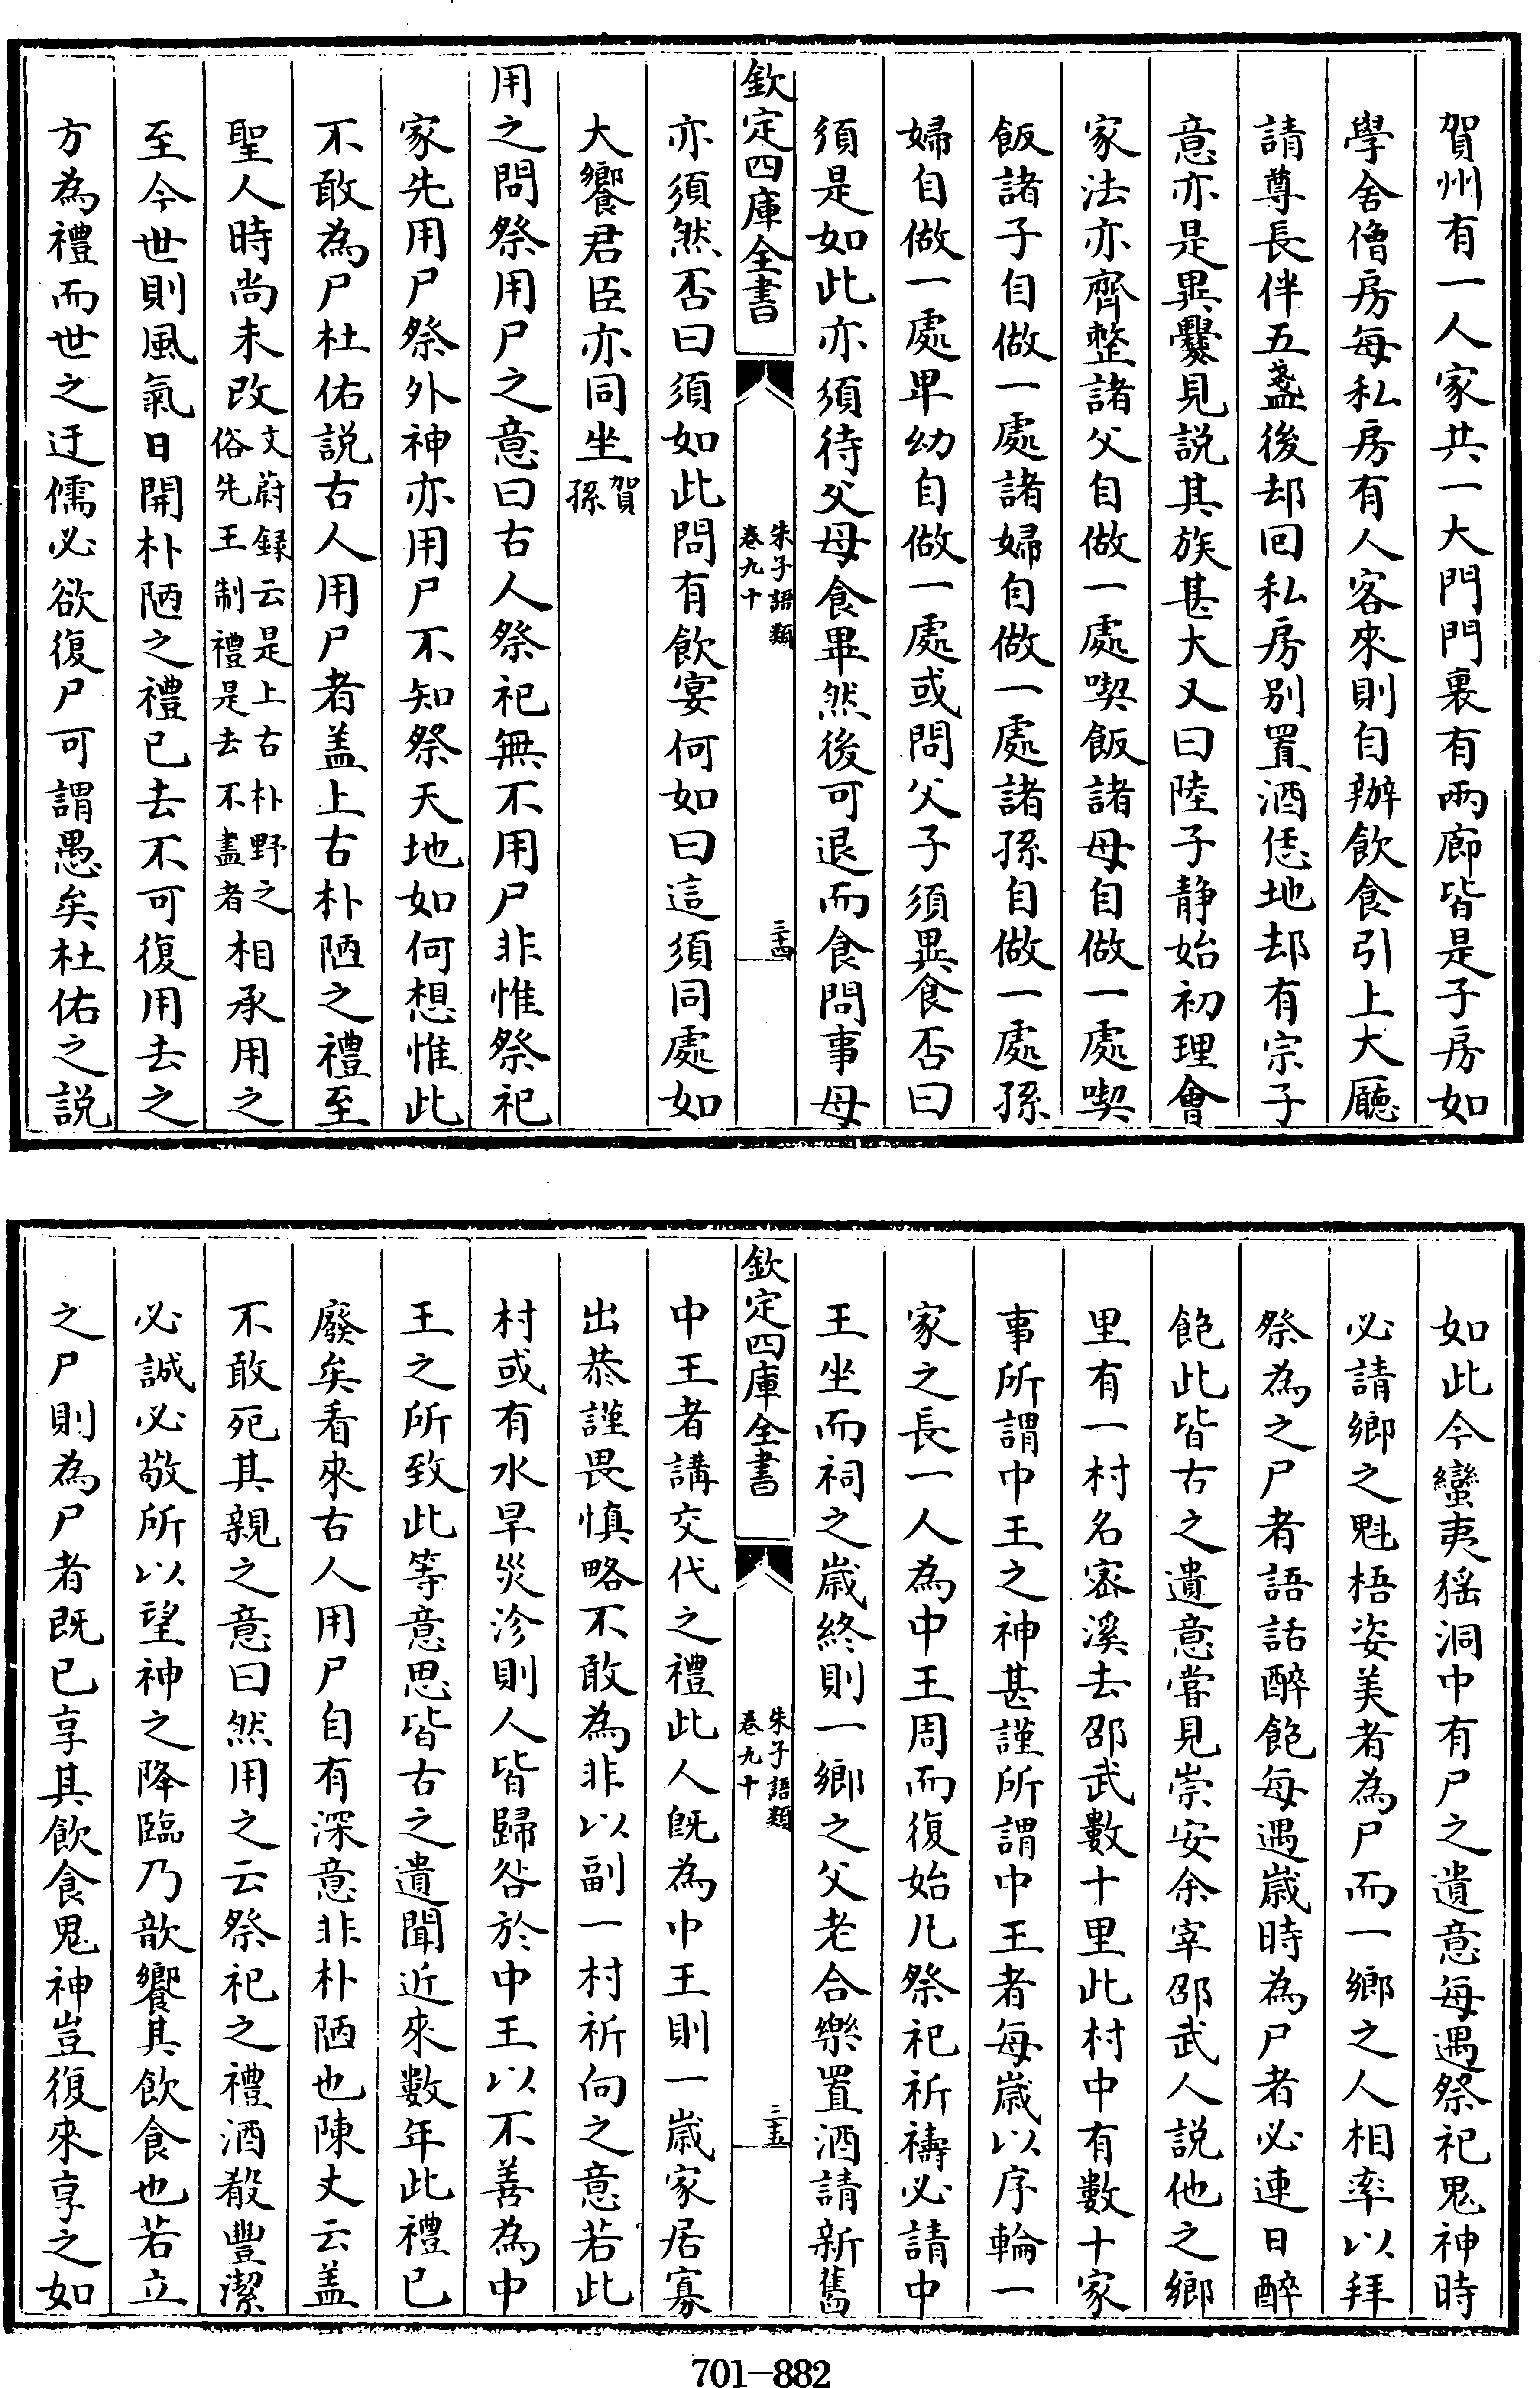 賀州有一人家共一大門門裏有兩廊皆是子房如
學舍僧房每私房有人客來則自辦飲食引上大廳
請尊長伴五盞後却回私房别置酒恁地却有宗子
意亦是異爨見説其族甚大又曰陸子静始初理會
家法亦齊整諸父自做一處喫飯諸母自做一處喫
飯諸子自做一處諸婦自做一處諸孫自做一處孫
婦自做一處卑幼自做一處或問父子須異食否曰
須是如此亦須待父母食畢然後可退而食問事母
欽定四庫全書
朱子語類
卷九十
三十四
亦須然否曰須如此問有飲宴何如曰這須同處如
大饗君臣亦同坐賀孫
用之問祭用尸之意曰古人祭祀無不用尸非惟祭祀
家先用尸祭外神亦用尸不知祭天地如何想惟此
不敢為尸杜佑説古人用尸者盖上古朴陋之禮至
聖人時尚未改文蔚録云是上古朴野之俗先王制禮是去不盡者相承用之
至今世則風氣日開朴陋之禮已去不可復用去之
方為禮而世之迂儒必欲復尸可謂愚矣杜佑之説
如此今蠻夷猺洞中有尸之遺意每遇祭祀鬼神時
必請鄉之魁梧姿美者為尸而一鄉之人相率以拜
祭為之尸者語話醉飽每遇歲時為尸者必連日醉
飽此皆古之遺意嘗見崇安余宰邵武人説他之鄉
里有一村名宻溪去邵武數十里此村中有數十家
事所謂中王之神甚謹所謂中王者每歲以序輪一
家之長一人為中王周而復始凡祭祀祈禱必請中
王坐而祠之歲終則一鄉之父老合樂置酒請新舊
欽定四庫全書
朱子語類
卷九十
三十五
中王者講交代之禮此人旣為中王則一歲家居寡
出恭謹畏慎略不敢為非以副一村祈向之意若此
村或有水旱災沴則人皆歸咎於中王以不善為中
王之所致此等意思皆古之遺聞近來數年此禮已
廢矣看來古人用尸自有深意非朴陋也陳丈云盖
不敢死其親之意曰然用之云祭祀之禮酒殽豐潔
必誠必敬所以望神之降臨乃歆饗其飲食也若立
之尸則為尸者既已享其飲食鬼神豈復來享之如
701-882